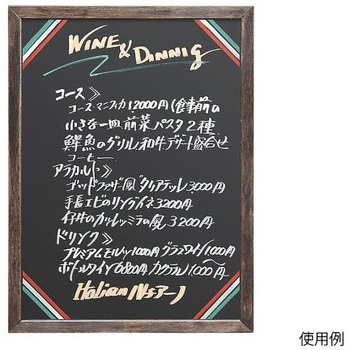 WINE & DINNIG
コース》
コース マニフィカ 12000円(食事前の
小さな一皿 前菜 パスタ2種
鮮魚のグリル 和牛 デザート盛合せ
コーヒー
アラカルト》
ゴッドファザー風 タリアテッレ 3000円
手長エビのリングイネ 3200円
仔牛のカツレツ ミラノ風 3200円
ドリンク》
プレミアムモルツ 1000円 グラスワイン 1000円
ボトルワイン 6800円 カクテル 1000〜円
Italian
使用例